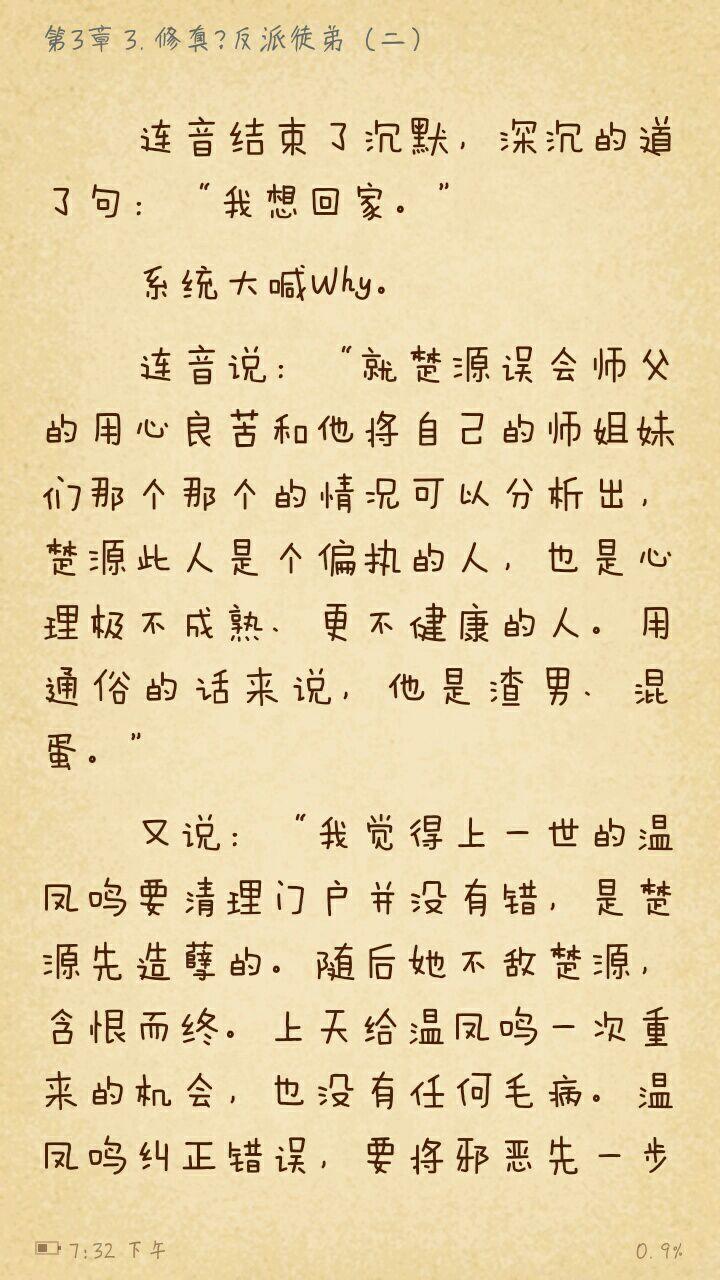 第3章 3.修真?反派徒弟（二）
连音结束了沉默，深沉的道
了句：“我想回家。”
系统大喊Why。
连音说：“就楚源误会师父
的用心良苦和他将自己的师姐妹
们那个那个的情况可以分析出，
楚源此人是个偏执的人，也是心
理极不成熟、更不健康的人。用
通俗的话来说，他是渣男、混
蛋。”
又说：“我觉得上一世的温
凤鸣要清理门户并没有错，是楚
源先造孽的。随后她不敌楚源，
含恨而终。上天给温凤鸣一次重
来的机会，也没有任何毛病。温
凤鸣纠正错误，要将邪恶先一步
7:32 下午
0.9%